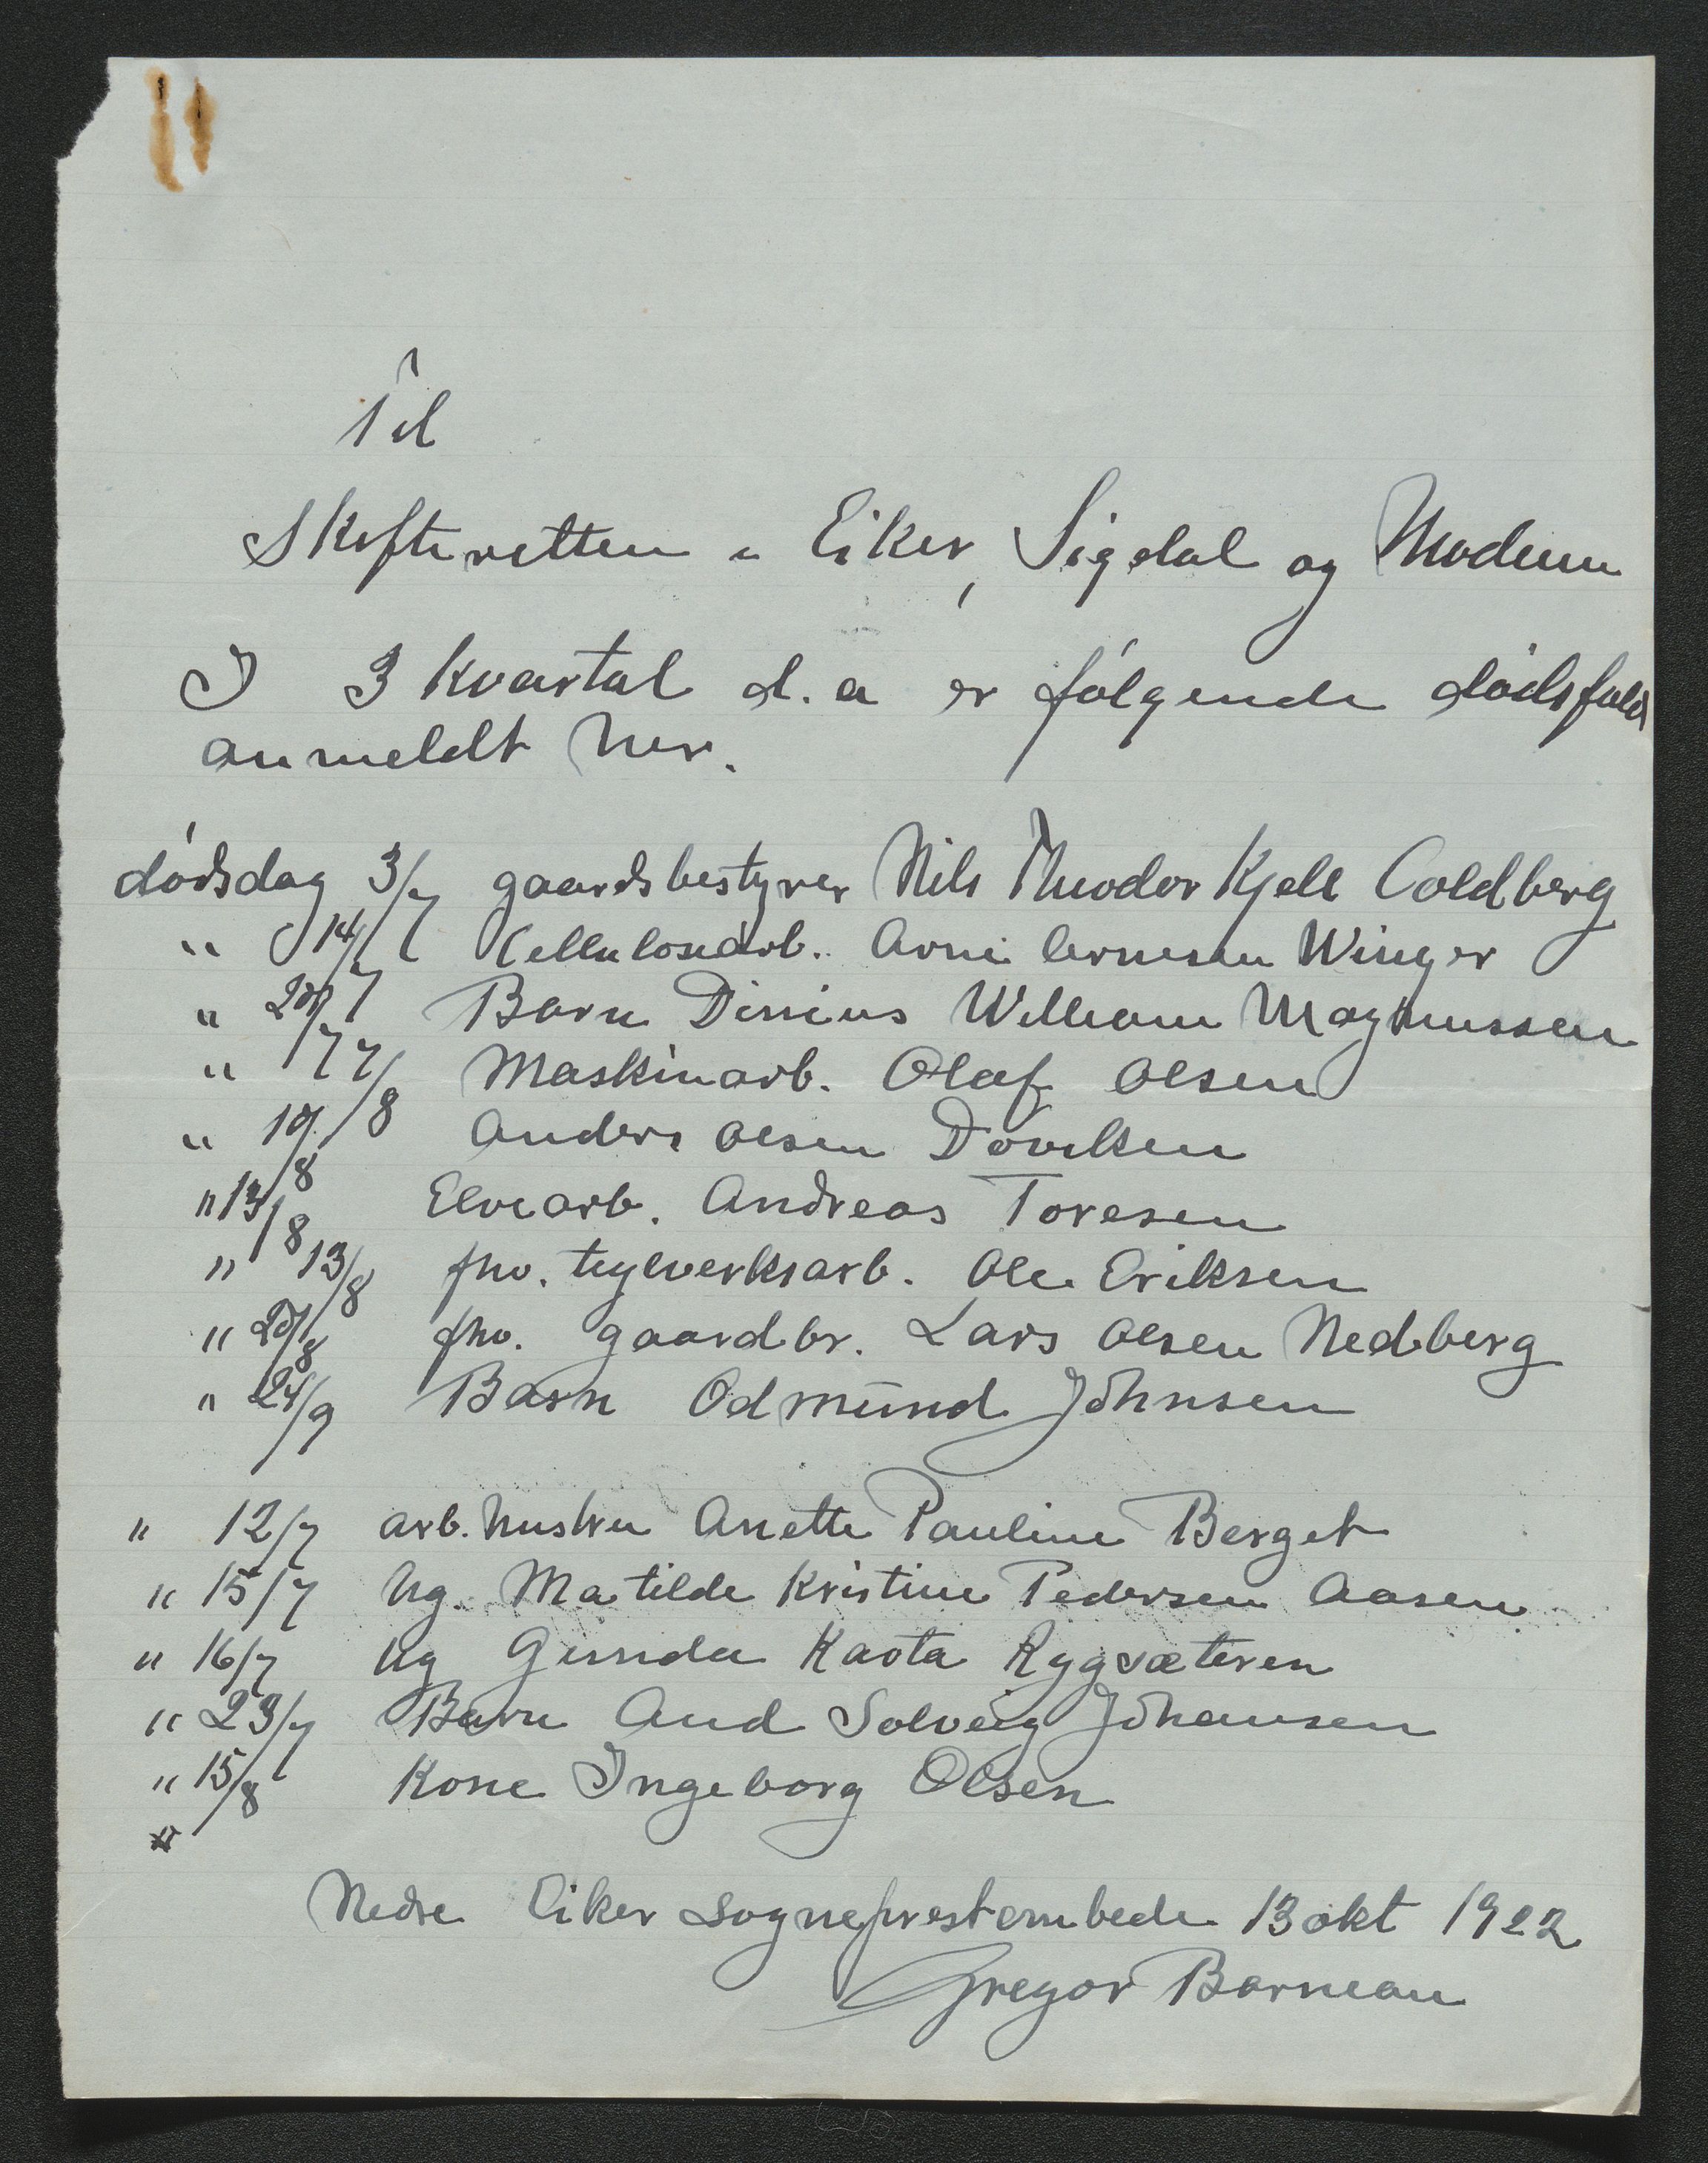 Til
Skifteretten i Eiker, Sigdal og Modum
I 3 kvartal d. a er følgende dødsfald
anmeldt her.
dødsdag 3/7 gaardsbestyrer Nils Theodor Kjell Coldberg
" 14/7 Cellulosearb. Arne Arnesen Winger
" 28/7 Barn Dinius William Magnussen
" 7/8 Maskinarb. Olaf Olsen
" 10/8 Anders Olsen Døviken
" 13/8 Elvearb. Andreas Toresen
" 13/8 fhv. teglverksarb. Ole Eriksen
" 20/8 fhv. gaardbr. Lars Olsen Nedberg
" 24/9 Barn Odmund Johnsen
" 12/7 arb. hustru Anette Pauline Berget
" 15/7 hg. Matilde Kristine Pedersen Aasen
" 16/7 hg Gunda Kasta Rygsæteren
" 23/7 Barn Aud Solveig Johansen
" 15/8 Kone Ingeborg Olsen
"
Nedre Eiker sogneprestembede 13 okt 1922
Gregor Barman